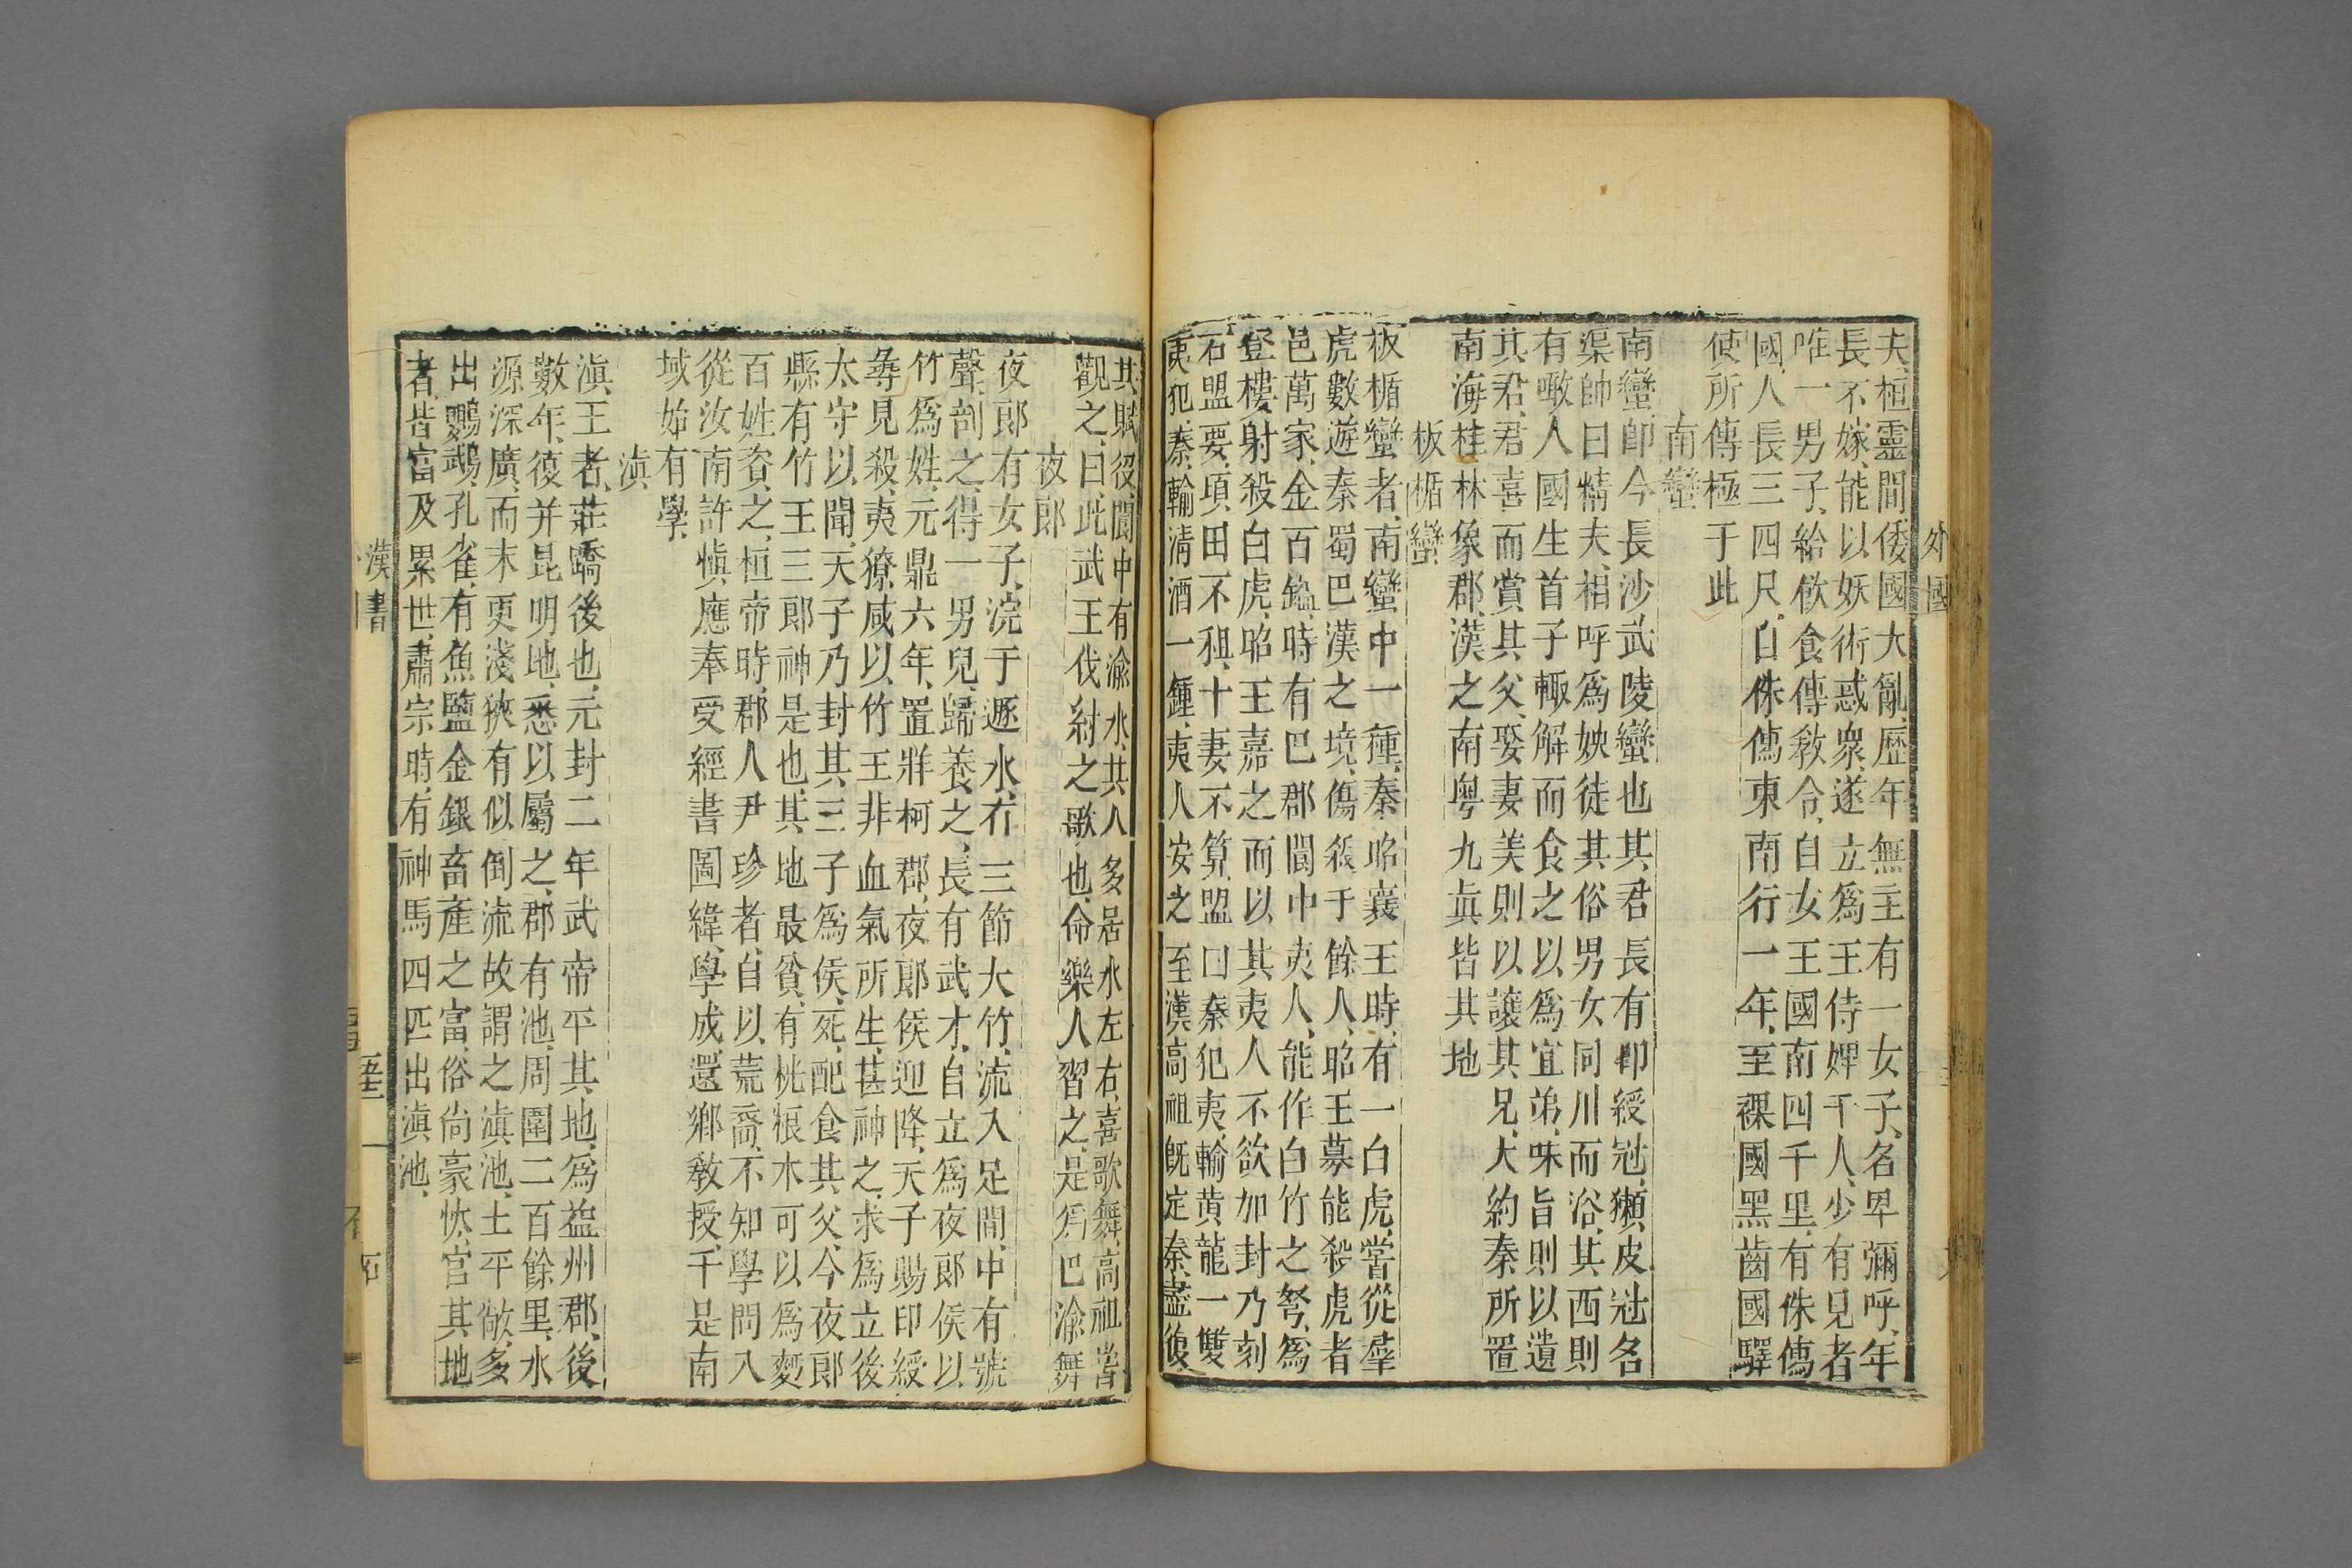 外國
夫桓靈間倭國大亂歷年無主有一女子名卑彌呼年
長不嫁能以妖術惑衆遂立爲王侍婢千人少有見者
唯一男子給飲食傳敎令自女王國南四千里有侏儒
國人長三四尺自侏儒東南行一年至裸國黑齒國驛
使所傳極于此
南蠻
南蠻卽今長沙武陵蠻也其君長有印綬冠獺皮冠名
渠帥曰精夫相呼爲姎徒其俗男女同川而浴其西則
有噉人國生首子輒解而食之以爲宜弟味旨則以遺
其君君喜而賞其父娶妻美則以讓其兄大約秦所置
南海桂林象郡漢之南粤九眞皆其地
板楯蠻
板楯蠻者南蠻中一種秦昭襄王時有一白虎嘗從羣
虎數遊秦蜀巴漢之境傷殺于餘人昭王募能殺虎者
邑萬家金百鎰時有巴郡閬中夷人能作白竹之弩爲
登樓射殺白虎昭王嘉之而以其夷人不欲加封乃刻
石盟要項田不租十妻不算盟曰秦犯夷輸黄龍一雙
夷犯秦輸淸酒一鍾夷人安之至漢高祖旣定秦蠶復
其賦役閬中有渝水其人多居水左右喜歌舞高祖嘗
觀之曰此武王伐紂之歌也命樂人習之是爲巴渝舞
夜郎
夜郎有女子浣于遯水有三節大竹流入足間中有號
聲剖之得一男兒歸養之長有武才自立爲夜郎侯以
竹爲姓元鼎六年置牂柯郡夜郎侯迎降天子賜印綬
彝見殺夷獠咸以竹王非血氣所生甚神之求爲立後
太守以聞天子乃封其三子爲侯死配食其父今夜郎
縣有竹王三郎神是也其地最貧有桄榔木可以爲麫
百姓資之桓帝時郡人尹珍者自以荒裔不知學問入
從汝南許愼應奉受經書圖緯學成還鄉敎授于是南
域始有學
滇
滇王者莊蹻後也元封二年武帝平其地爲益州郡後
數年復并昆明地悉以屬之郡有池周圍二百餘里水
源深廣而末更淺狹有似倒流故謂之滇池土平敞多
出鸚鵡孔雀有魚鹽金銀畜產之富俗尚豪忲官其地
者皆富及累世肅宗時有神馬四匹出滇池
漢書